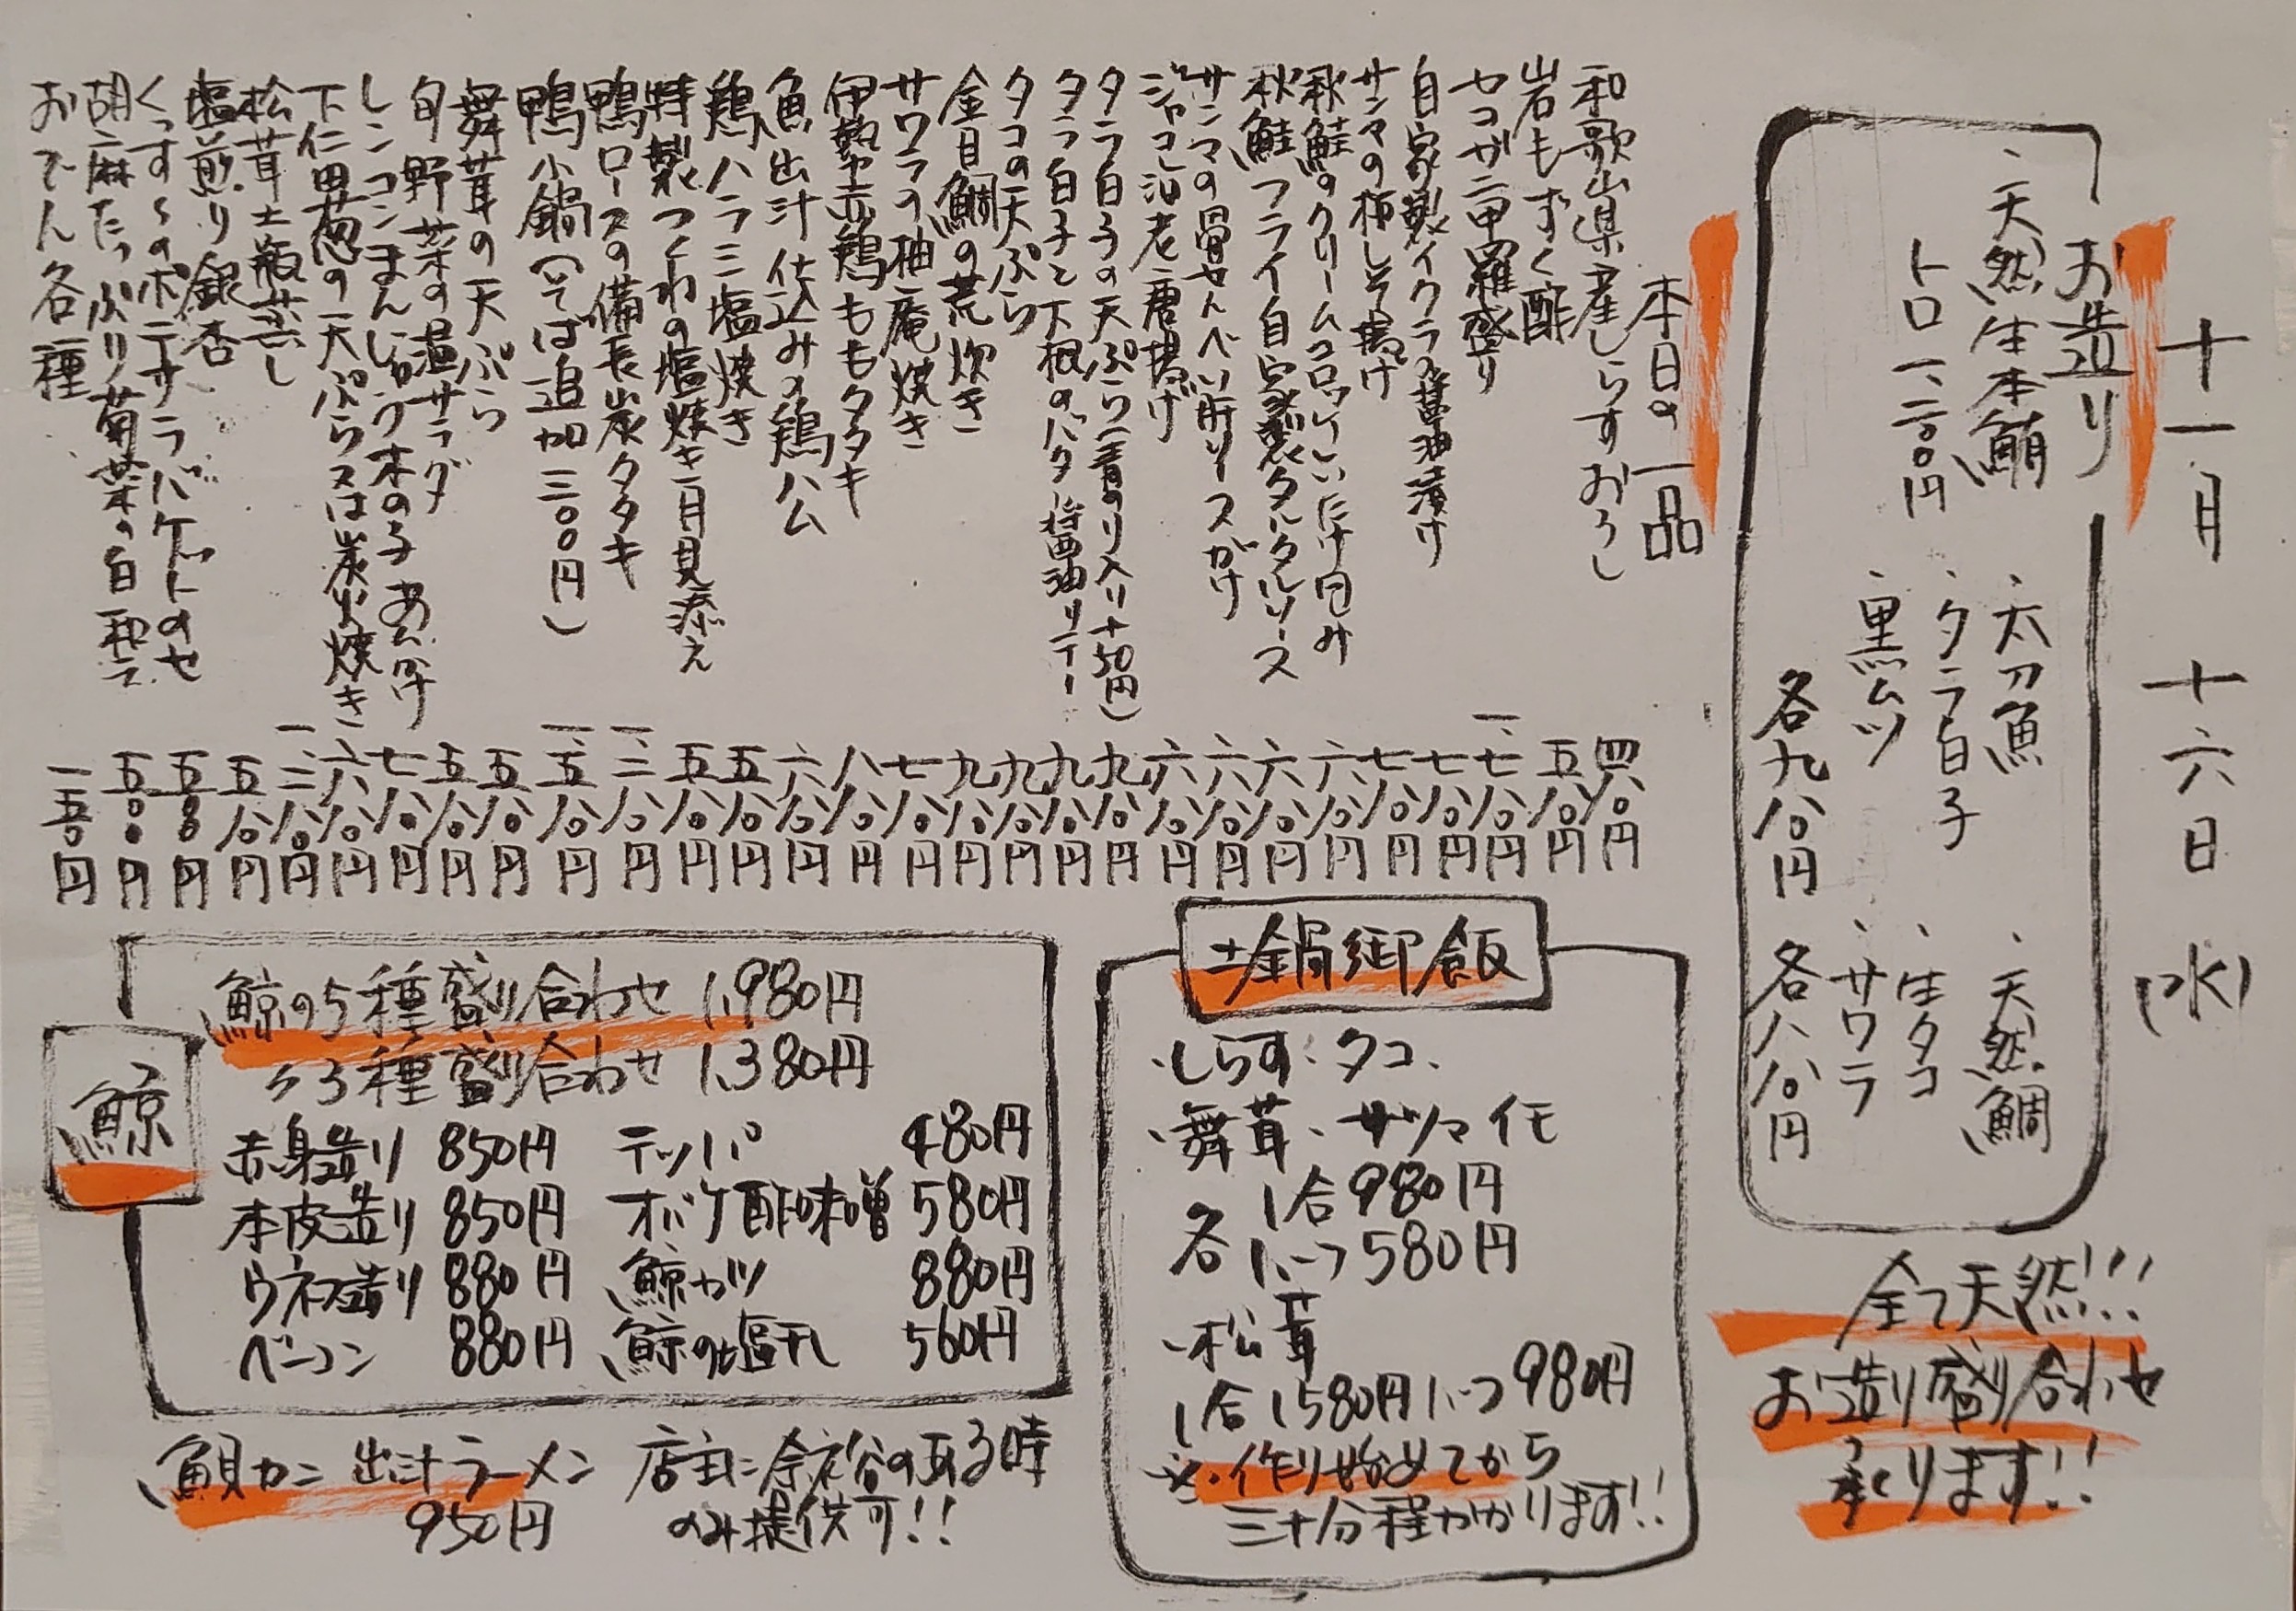 十一月 十六日 (水)
お造り
・天然生本鮪
トロ 一、二〇〇円
・太刀魚
・タラ白子
・黒ムツ
各九八〇円
・天然鯛
・生タコ
・サワラ
各八八〇円
全て天然!!!
お造り盛り合わせ
承ります!!
本日の一品
和歌山県産しらすおろし 四八〇円
岩もずく酢 五八〇円
セコガニ甲羅盛り 一、七八〇円
自家製イクラの醤油漬け 七八〇円
サンマの梅しそ揚げ 七八〇円
秋鮭のクリームコロッケしいたけ包み 六八〇円
秋鮭フライ自家製タルタルソース 六八〇円
サンマの骨せんべい肝ソースがけ 六八〇円
ジャコと海老の唐揚げ 六八〇円
タラ白子の天ぷら(青のり入り+50円) 九八〇円
タラ白子と下根のバター醤油ソテー 九八〇円
タコの天ぷら 九八〇円
金目鯛の荒炊き 九八〇円
サワラの柚庵焼き 七八〇円
伊勢赤鶏ももタタキ 八八〇円
魚出汁仕込みの鶏ハム 六八〇円
鶏ハラミ塩焼き 五八〇円
特製つくねの塩焼き 月見添え 五八〇円
鴨ロースの備長炭タタキ 一、二八〇円
鴨小鍋(そば追加三〇〇円) 一、五八〇円
舞茸の天ぷら 五八〇円
旬野菜の温サラダ 五八〇円
レンコンまんじゅう木の子あんかけ 七八〇円
下仁田葱の天ぷら又は炭火焼き 六八〇円
松茸土瓶蒸し 一、二八〇円
塩煎り銀杏 五八〇円
くっすんのポテサラバケットのせ 五五〇円
胡麻たっぷり菊菜の白和え 五〇〇円
おでん各種 一五〇円
土鍋御飯
・しらす・タコ、
・舞茸・サツマイモ
各 1合980円
1/2つ580円
・松茸
1合1580円 1/2つ980円
※・作り始めてから
三十分程かかります!!
鯨
鯨の5種盛り合わせ 1,980円
〃3種盛り合わせ 1,380円
赤身造り 850円 テッパ 480円
本皮造り 850円 オバケ酢味噌 580円
ウネス造り 880円 鯨カツ 880円
ベーコン 880円 鯨の塩干し 560円
魚貝カニ出汁ラーメン 店主に余裕のある時
950円 のみ提供可!!